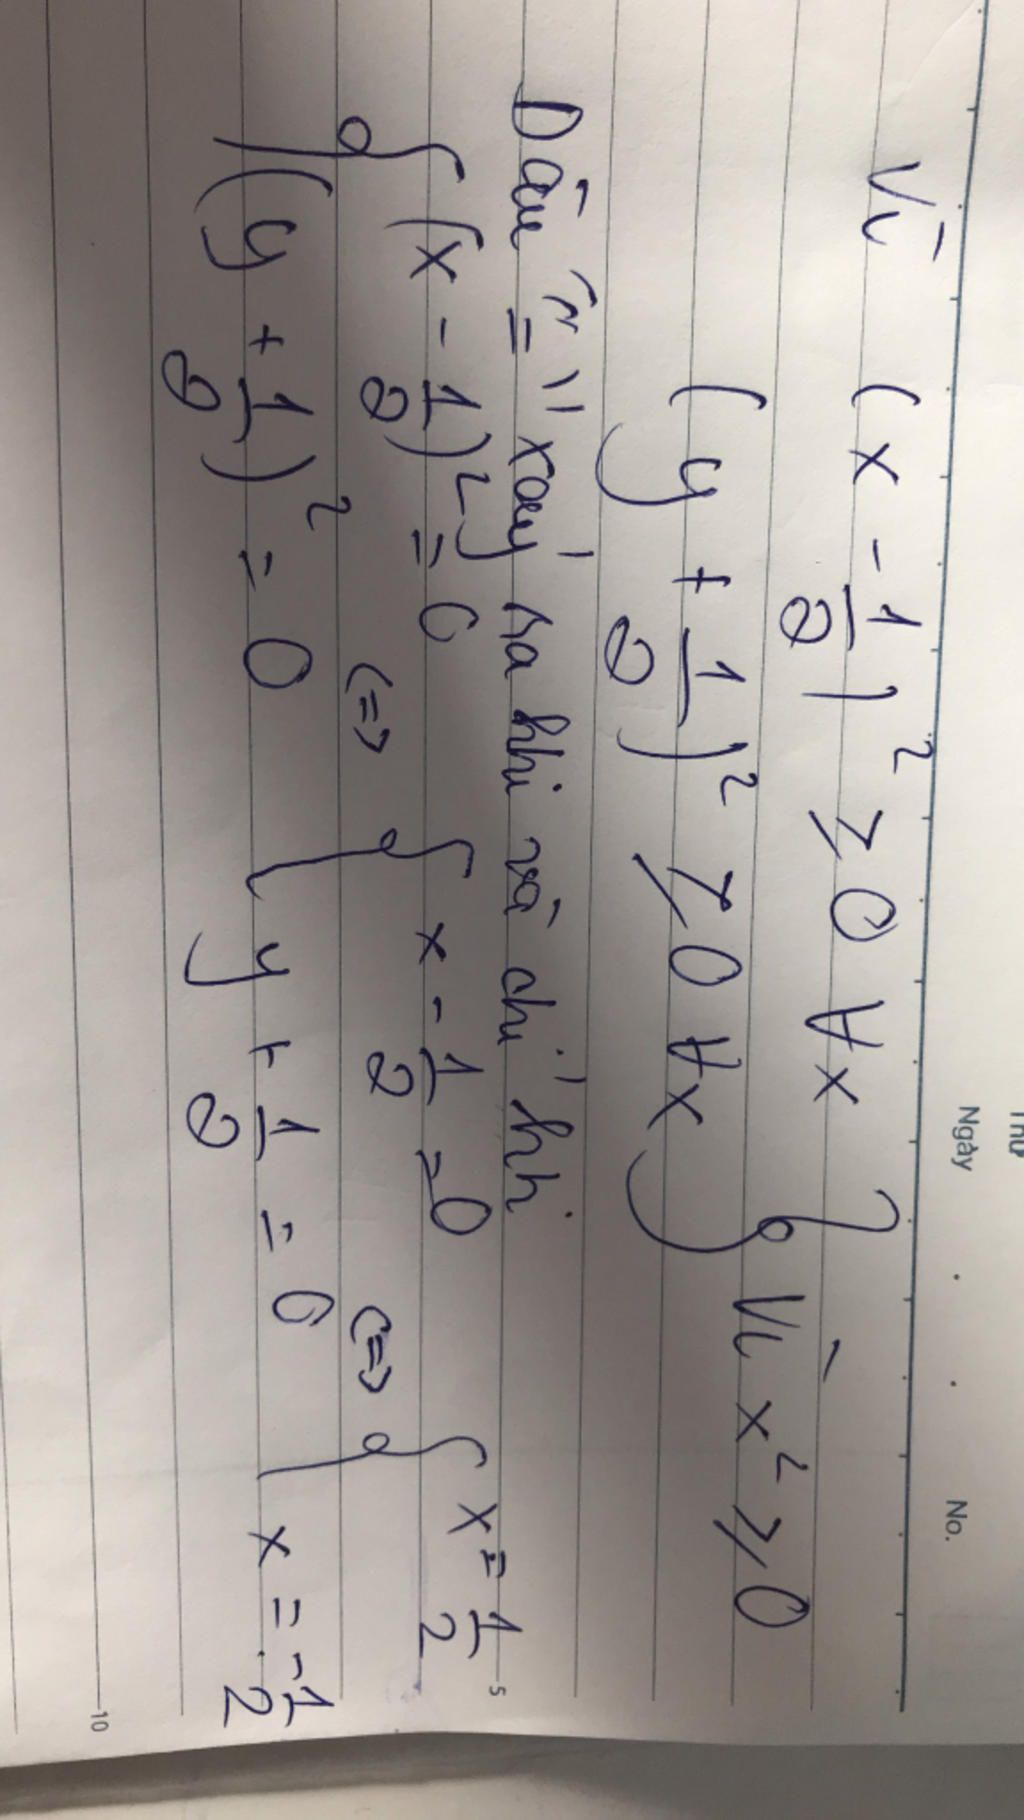 Thứ
Ngày . . No.
Vì (x - 1/2)² ≥ 0 ∀x
(y + 1/2)² ≥ 0 ∀x } Vì x² ≥ 0
Dấu "=" xảy ra khi và chỉ khi
{ (x - 1/2)² = 0 <=> { x - 1/2 = 0 <=> { x = 1/2
(y + 1/2)² = 0 y + 1/2 = 0 x = -1/2
5
10